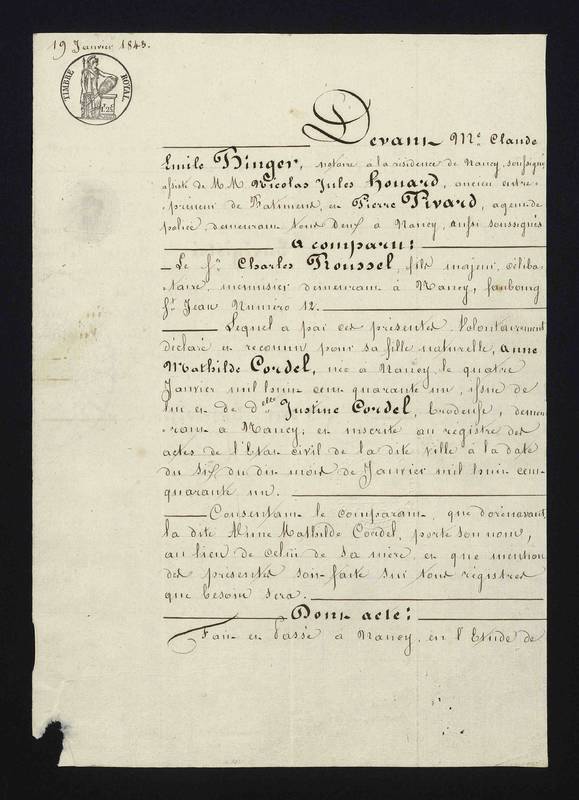 19 Janvier 1843.
TIMBRE ROYAL
1F.25c
Devant Me. Claude
Emile Hinger, notaire à la résidence de Nancy, soussigné
assisté de M.M. Nicolas Jules Houard, ancien entre-
preneur de Batiments, et Pierre Pivard, agent de
police, demeurant tous deux à Nancy, aussi soussignés
a comparu:
Le Sr. Charles Roussel, fils majeur, céliba-
taire, menuisier demeurant à Nancy, faubourg
St. Jean Numéro 12.
Lequel a par ces présentes Volontairement
déclaré et reconnu pour sa fille naturelle, Anne
Mathilde Cordel, née à Nancy, le quatre
Janvier mil huit cent quarante un, issue de
lui et de delle Justine Cordel, brodeuse, demeu-
rant à Nancy; et inscrite au registre des
actes de l'Etat civil de la dite ville à la date
du six du dit mois de Janvier mil huit cent
quarante un.
Consentant le comparant, que dorénavant,
la dite Anne Mathilde Cordel, porte son nom,
au lieu de celui de sa mère et que mention
des présentes soit faite sur tous régistres
que besoin sera.
Dont acte:
Fait et Passé à Nancy, en l'Etude de